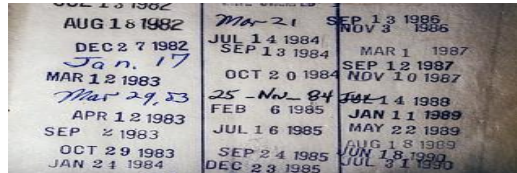 AUG 18 1982
DEC 27 1982
Jan. 17
MAR 12 1983
Mar 29, 83
APR 12 1983
SEP 2 1983
OCT 29 1983
JAN 24 1984
Mar 21
JUL 14 1984
SEP 13 1984
OCT 20 1984
25 - Nov - 84
FEB 6 1985
JUL 16 1985
SEP 24 1985
DEC 23 1985
SEP 13 1986
NOV 3 1986
MAR 1 1987
SEP 12 1987
NOV 10 1987
JUL 14 1988
JAN 11 1989
MAY 22 1989
AUG 18 1989
JUN 18 1990
JUL 31 1990